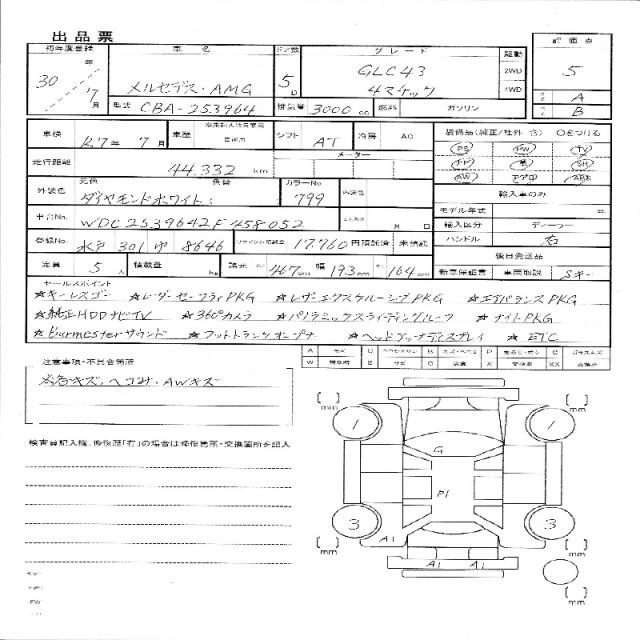 出品票
初年度登録 車名 ドア数 グレード 駆動 評価点
30年 7月 メルセデス・AMG 5D GLC43 4マチック 2WD 4WD 5
型式 CBA-253964 排気量 3000cc 燃料 ガソリン A B
車検 R7年 7月 車歴 自家用 シフト AT 冷房 AC 装備品(純正/社外 含) ○をつける
走行距離 44,332km メーター PS PW TV
外装色 元色 色替 カラーNo 内装色 AW エアB ABS
ダイヤモンドホワイト 799 輸入車のみ
モデル年式 年
車台No. WDC2539642F458052 輸入区分 ディーラー
登録No. 水戸 301 ゆ 8646 リサイクル預託金 17,760円預託済 未預託 ハンドル 右
後日発送品
定員 5人 積載量 kg 諸元 467cm 幅 193cm 164cm 新車保証書 車両取説 Sキー
セールスポイント
★キーレスゴー ★レーダーセーフティPKG ★レザーエクスクルーシブPKG ★エアバランスPKG
★純正HDDナビTV ★360°カメラ ★パノラミックスライディングルーフ ★ナイトPKG
★Burmesterサウンド ★フットトランクオープナー ★ヘッドアップディスプレイ ★ETC
A キズ U B P C
W S C サビ X XX
注意事項・不具合箇所
各キズ、ヘコみ・AWキズ
検査員記入欄、修復歴「有」の場合は修復箇所・交換箇所を記入
[ ]mm [ ]mm
1 1
G
P1
3 3
A1
[ ]mm A1 A1 [ ]mm
[ ]mm